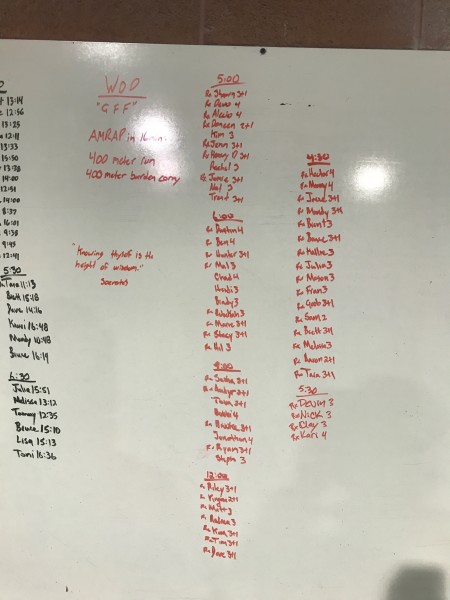 13:14
12:56
13:25
12:11
13:33
15:50
13:28
14:00
12:51
14:00
8:37
16:01
9:38
9:45
12:41
5:30
Tara 11:13
Brett 15:18
Dave 14:16
Kauri 16:48
Mandy 14:48
Bruce 16:19
6:30
Julia 15:51
Melissa 13:12
Tammy 12:35
Bruce 15:10
Lisa 15:13
Tami 16:36
WOD
"GFF"
AMRAP in 16 min:
400 meter run
400 meter burden carry
"Knowing thyself is the
height of wisdom."
Socrates
5:00
Rx Shawn 3+1
Rx Dave 4
Rx Alexis 4
Rx Doreen 2+1
Kim 3
Rx Jenn 3+1
Rx Henry D 3+1
Rachel 3
Rx Jamie 3+1
Mal 2
Trent 3+1
6:00
Rx Dustin 4
Rx Ben 4
Rx Hunter 3+1
Rx Mal 3
Chad 4
Heidi 3
Brady 3
Rx Rebekah 3
Rx Marie 3+1
Rx Stacy 3+1
Rx Hil 3
9:00
Rx Sasha 3+1
Rx 3+1
2+1
Bubba 4
Rx 3+1
Jonathan 4
Rx Ryann 3+1
Steph 3
12:00
Rx Riley 3+1
Rx 2+1
Rx Matt 3
Rx Andrea 3
Rx King 3+1
Rx Tim 3+1
Rx Dave 3+1
4:30
Rx Hector 4
Rx Manny 4
Rx Jesse 3+1
Rx Mandy 3+1
Rx Brent 3
Rx Bruce 3+1
Rx Hallie 3
Rx Julia 3
Rx Mason 3
Rx Fran 3
Rx Gabe 3+1
Rx Sam 2
Rx Brett 3+1
Rx Melissa 3
Rx Aaron 2+1
Rx Tara 3+1
5:30
Rx Devin 3
Rx Nick 3
Rx Clay 3
Rx Kari 4